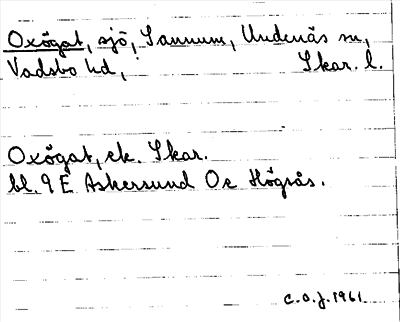 Oxögat, sjö, Sannum, Undenäs sn,
Vadsbo hd, Skar. l.
Oxögat, ek. Skar.
bl. 9 E Askersund Oe Högsås.
C.O.J. 1961